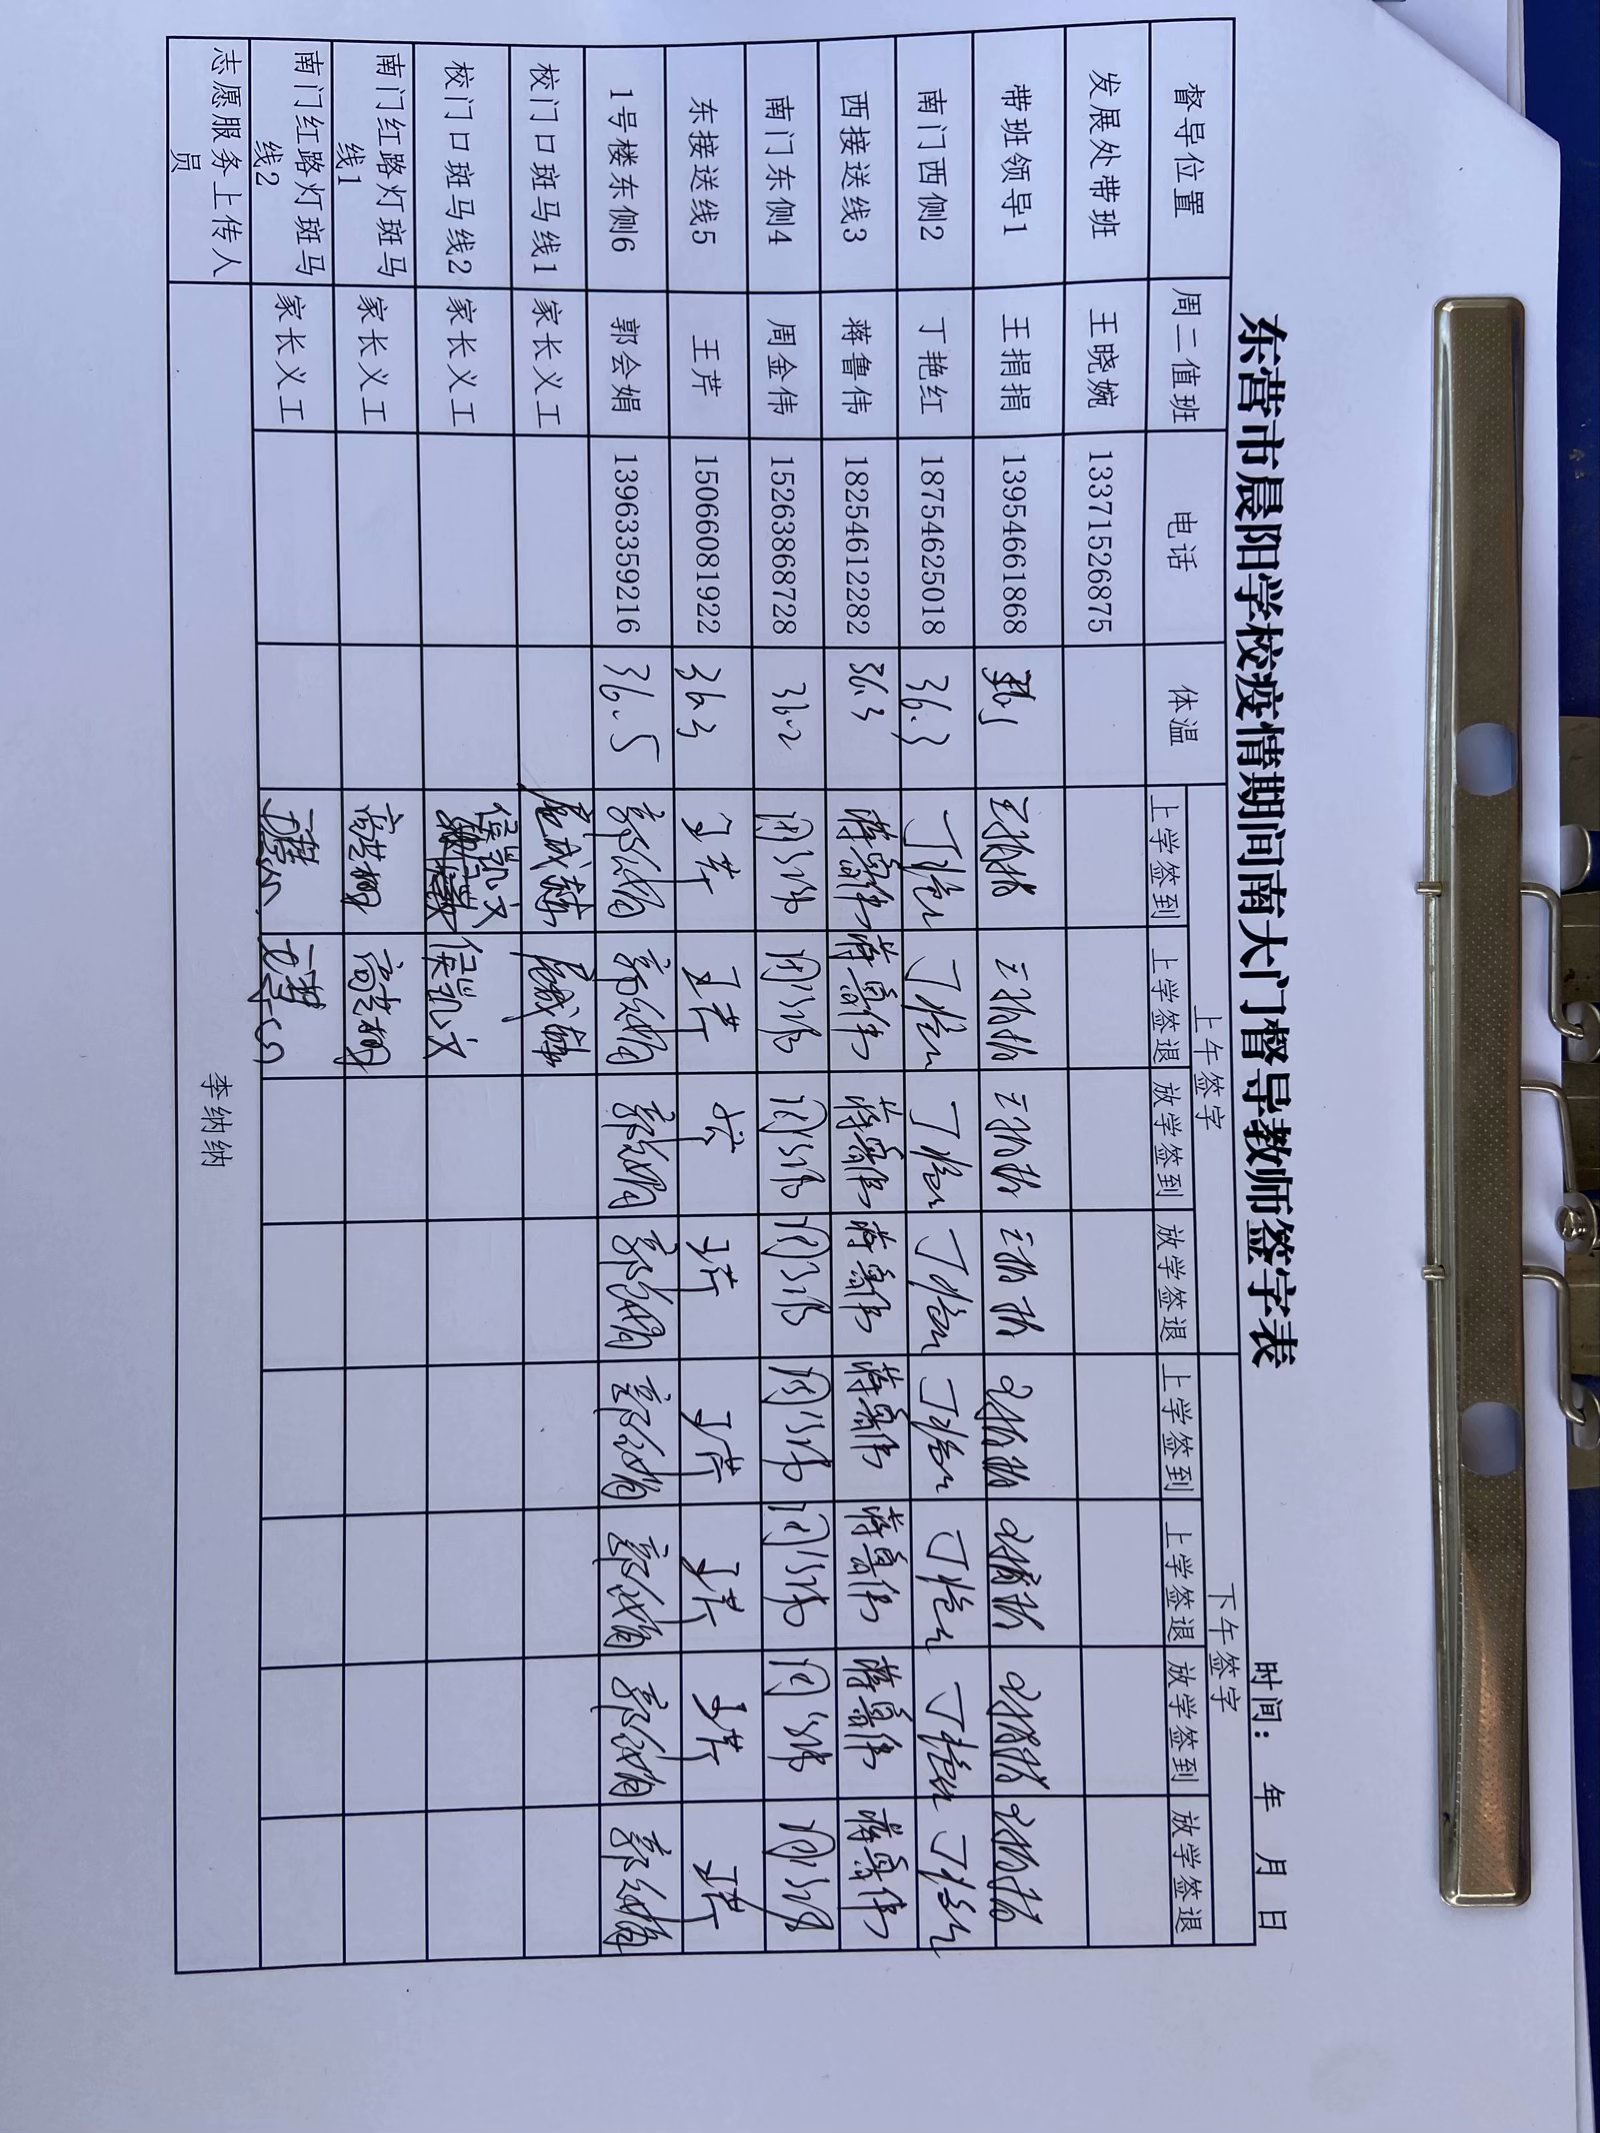 东营市晨阳学校疫情期间南大门督导教师签字表
时间： 年 月 日
督导位置 周二值班 电话 体温 上午签字 下午签字
上学签到 上学签退 放学签到 放学签退 上学签到 上学签退 放学签到 放学签退
发展处带班 王晓婉 13371526875
带班领导1 王捐捐 13954661868 王捐捐 王捐捐 王捐捐 王捐捐 王捐捐 王捐捐 王捐捐 王捐捐
南门西侧2 丁艳红 18754625018 36.3 丁艳红 丁艳红 丁艳红 丁艳红 丁艳红 丁艳红 丁艳红 丁艳红
西接送线3 蒋鲁伟 18254612282 36.3 蒋鲁伟 蒋鲁伟 蒋鲁伟 蒋鲁伟 蒋鲁伟 蒋鲁伟 蒋鲁伟 蒋鲁伟
南门东侧4 周金伟 15263868728 36.2 周金伟 周金伟 周金伟 周金伟 周金伟 周金伟 周金伟 周金伟
东接送线5 王芹 15066081922 36.3 王芹 王芹 王芹 王芹 王芹 王芹 王芹 王芹
1号楼东侧6 郭会娟 13963359216 36.5 郭会娟 郭会娟 郭会娟 郭会娟 郭会娟 郭会娟 郭会娟 郭会娟
校门口斑马线1 家长义工
校门口斑马线2 家长义工 侯凯文 侯凯文
南门红路灯斑马
线1 家长义工
南门红路灯斑马
线2 家长义工
志愿服务上传人
员 李纳纳